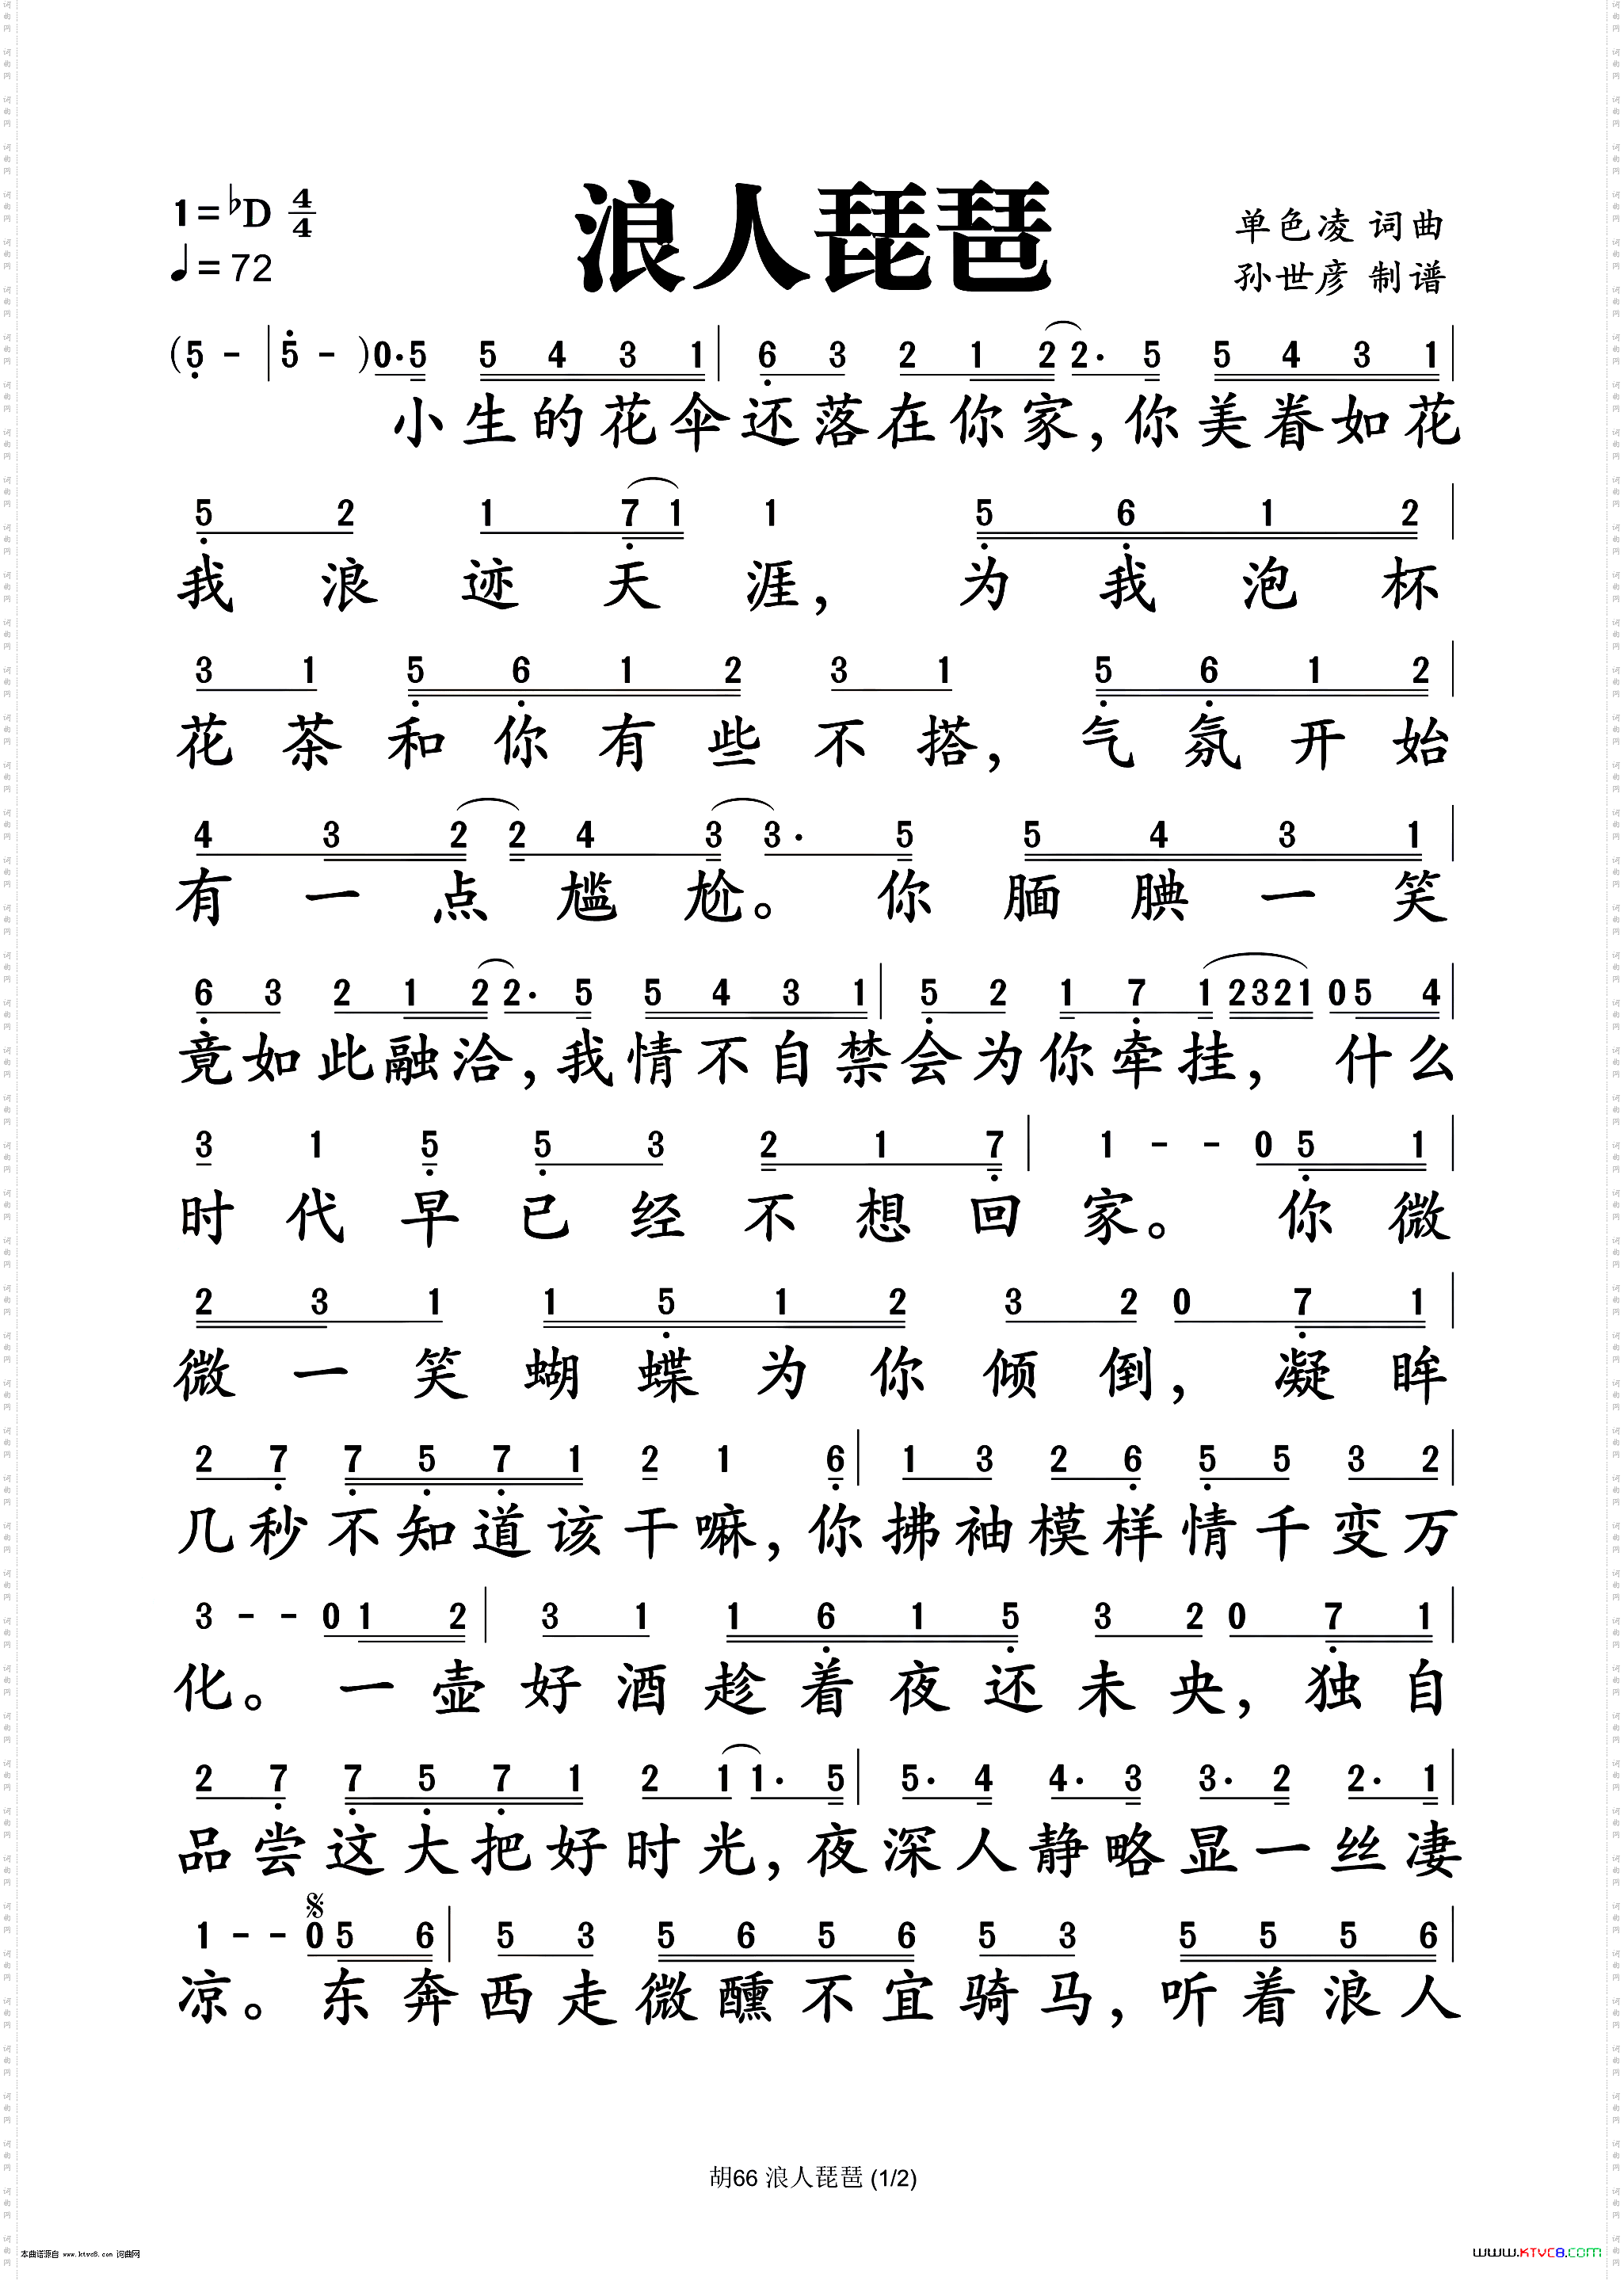 浪人琵琶
1=♭D 4/4
♩=72
单色凌 词曲
孙世彦 制谱
(5 - | 5 - ) 0· 5 5 4 3 1 | 6 3 2 1 2 2· 5 5 4 3 1 |
小生的花伞还落在你家,你美眷如花
5 2 1 7 1 1 5 6 1 2 |
我浪迹天涯, 为我泡杯
3 1 5 6 1 2 3 1 5 6 1 2 |
花茶和你有些不搭, 气氛开始
4 3 2 2 4 3 3· 5 5 4 3 1 |
有一点尴尬。 你腼腆一笑
6 3 2 1 2 2· 5 5 4 3 1 | 5 2 1 7 1 2321 0 5 4 |
竟如此融洽,我情不自禁会为你牵挂, 什么
3 1 5 5 3 2 1 7 | 1 - - 0 5 1 |
时代早已经不想回家。 你微
2 3 1 1 5 1 2 3 2 0 7 1 |
微一笑蝴蝶为你倾倒, 凝眸
2 7 7 5 7 1 2 1 6 | 1 3 2 6 5 5 3 2 |
几秒不知道该干嘛,你拂袖模样情千变万
3 - - 0 1 2 | 3 1 1 6 1 5 3 2 0 7 1 |
化。 一壶好酒趁着夜还未央, 独自
2 7 7 5 7 1 2 1 1· 5 | 5· 4 4· 3 3· 2 2· 1 |
品尝这大把好时光,夜深人静略显一丝凄
1 - - 𝄋 0 5 6 | 5 3 5 6 5 6 5 3 5 5 5 6 |
凉。 东奔西走微醺不宜骑马, 听着浪人
胡66 浪人琵琶 (1/2)
本曲谱源自 www.ktvc8.com 词曲网
www.KTVC8.com